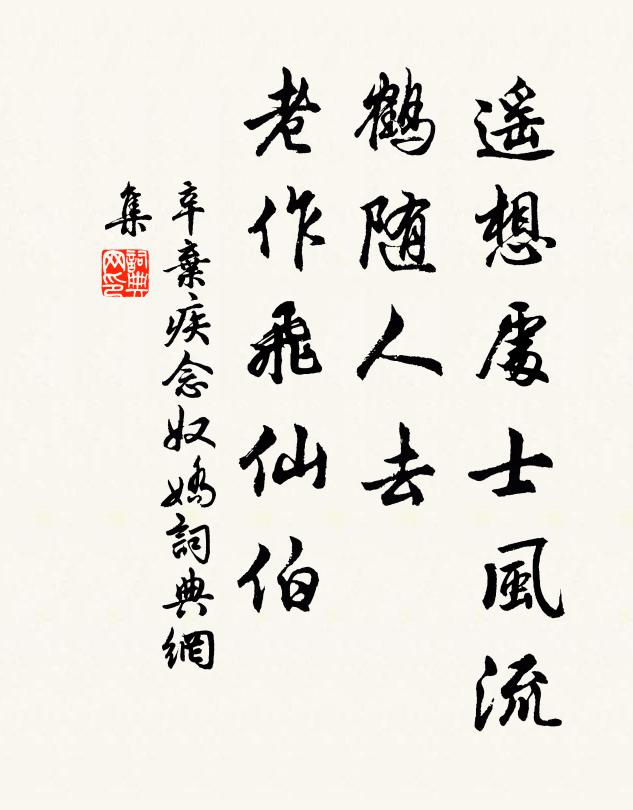 遥想處士風流
鶴随人去
老作飛仙伯
辛棄疾念奴嬌詞典網
集
詞典網印